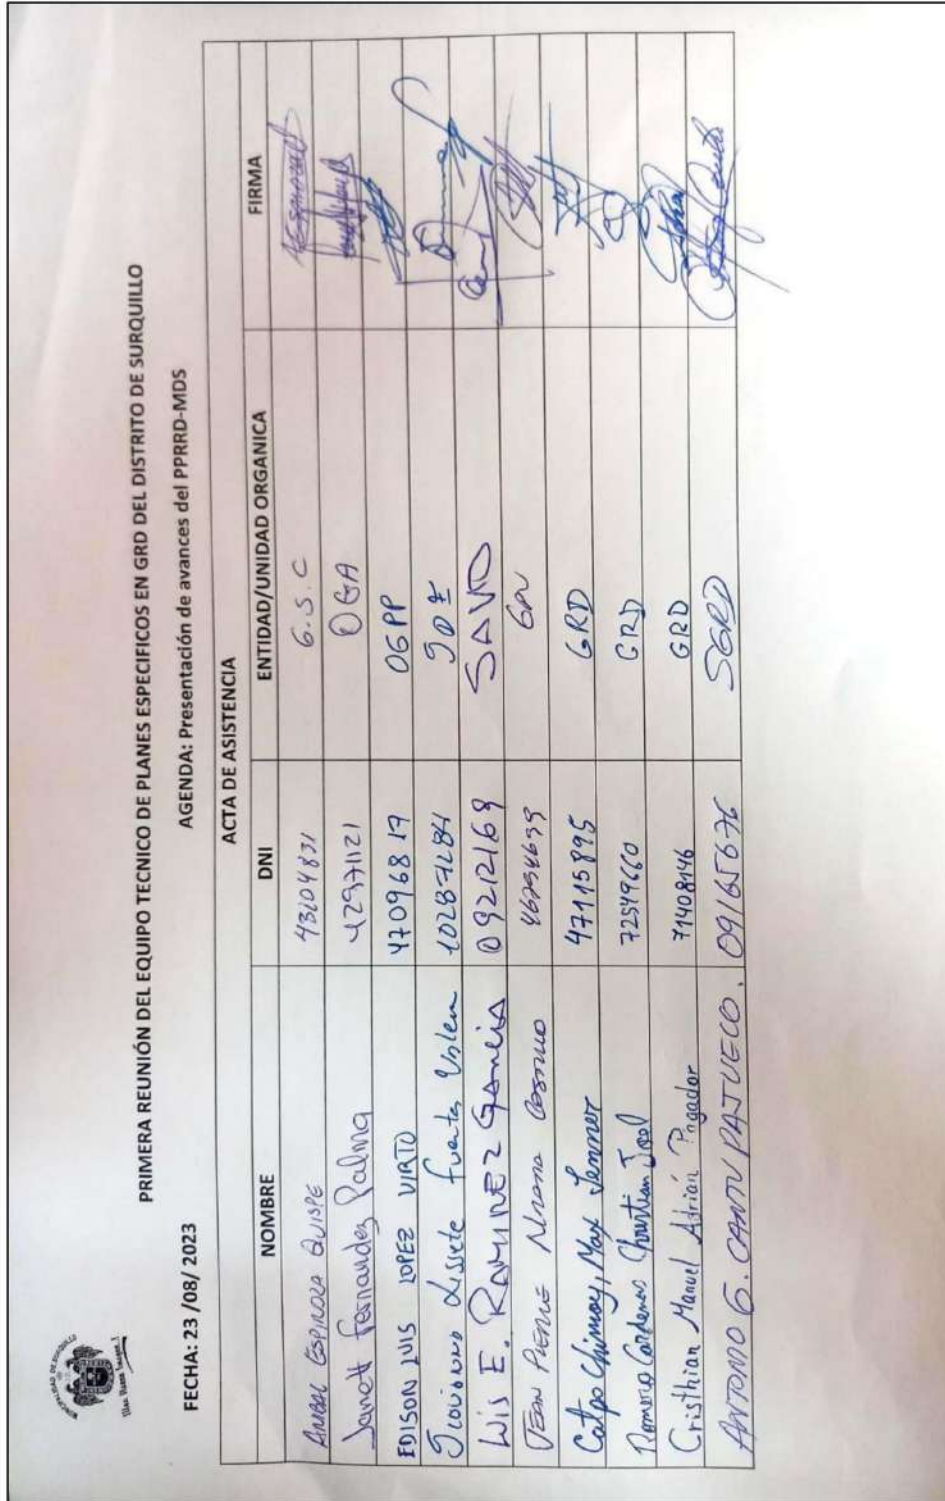 PRIMERA REUNIÓN DEL EQUIPO TECNICO DE PLANES ESPECIFICOS EN GRD DEL DISTRITO DE SURQUILLO
FECHA: 23 /08/ 2023 AGENDA: Presentación de avances del PPRRD-MDS
ACTA DE ASISTENCIA
NOMBRE DNI ENTIDAD/UNIDAD ORGANICA FIRMA
ANIBAL ESPINOZA QUISPE 43204831 G.S.C
Janett Fernandez Palma 42971121 OGA
EDISON LUIS LOPEZ VIRTO 47096817 OGPP
Lissete Fuentes 10287284
Luis E. RAMIREZ GARCIA 09212169
JEAN PIERRE
Catpo Chimoy, Max Jenner 47115895 GRD
Romero Cardenas Christian Joel 72549660 GRD
Cristhian Manuel Adrián Pagador 71408146 GRD
ANTONIO G. CANTU PAJUELO. 09165676 SGRD